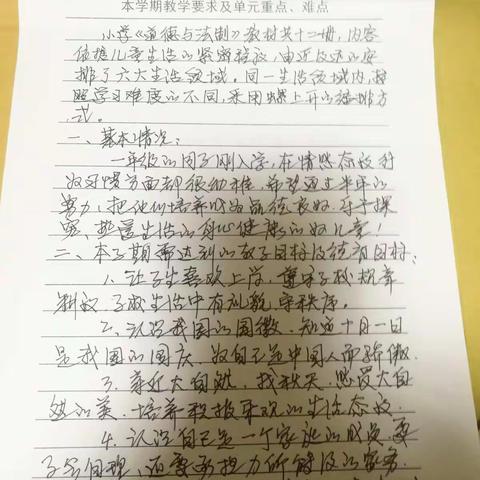 本学期教学要求及单元重点、难点
小学《道德与法制》教材共十二册,内容
依据儿童生活的紧密程度,由近及远的安
排了六大生活领域。同一生活领域内,按
照学习难度的不同,采用螺上升的编排方
式。
一、基本情况:
一年级的同学刚入学,在情感态度行
为习惯方面却很幼稚,希望通过半年的
努力,把他们培养成为品德良好、乐于探
究、热爱生活的身心健康的好儿童!
二、本学期需达到的教学目标及德育目标:
1.让学生喜欢上学,遵守学校规章
制度,学校生活中有礼貌,守秩序。
2.认识我国的国徽.知道十月一日
是我国的国庆.为自己是中国人而骄傲.
3.喜好大自然,找秋天,感受大自
然的美.培养积极乐观的生活态度.
4.认识自己是一个家庭的成员,要
学会自理,还要承担力所能及的家务.